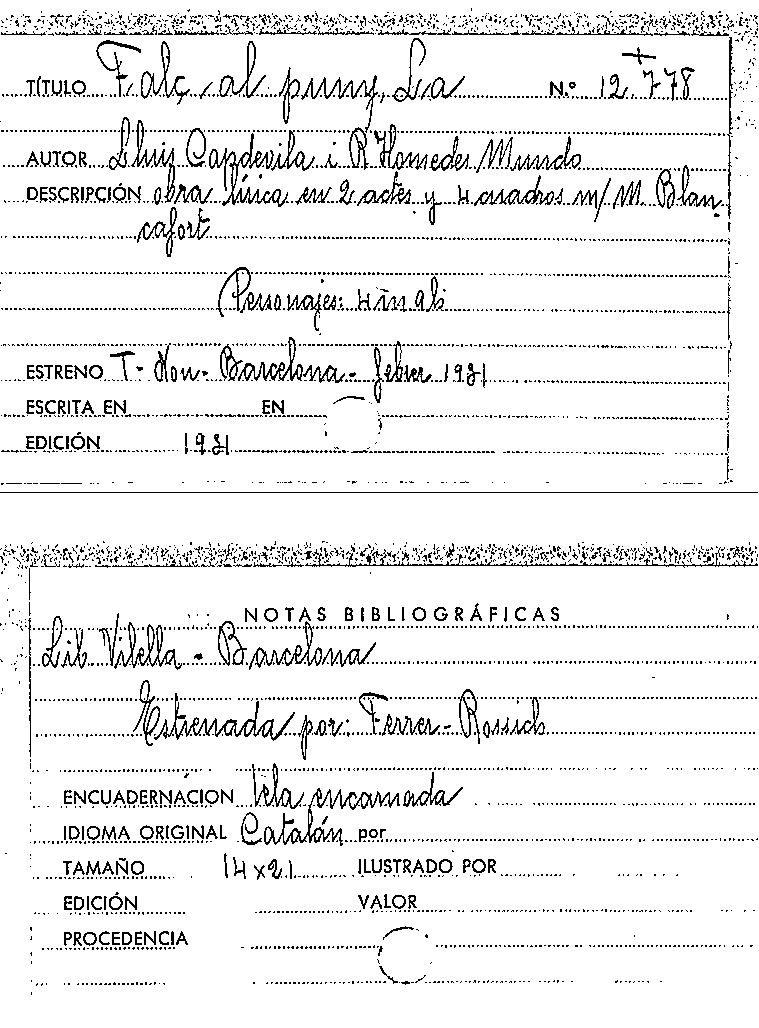 TÍTULO Falç al puny, La N.º 12.778
AUTOR Lluis Capdevila i R Homedes Mundo
DESCRIPCIÓN obra lírica en 2 actes y 4 cuadros m/ M. Blan-
cafort
Personajes: 4 m 9 h
ESTRENO T- Nou- Barcelona- febrer 1931
ESCRITA EN EN
EDICIÓN 1931
NOTAS BIBLIOGRÁFICAS
Lib. Vilella - Barcelona
Estrenada por: Ferrer- Rossich
ENCUADERNACION tela encarnada
IDIOMA ORIGINAL Catalán por
TAMAÑO 14x21 ILUSTRADO POR
EDICIÓN VALOR
PROCEDENCIA